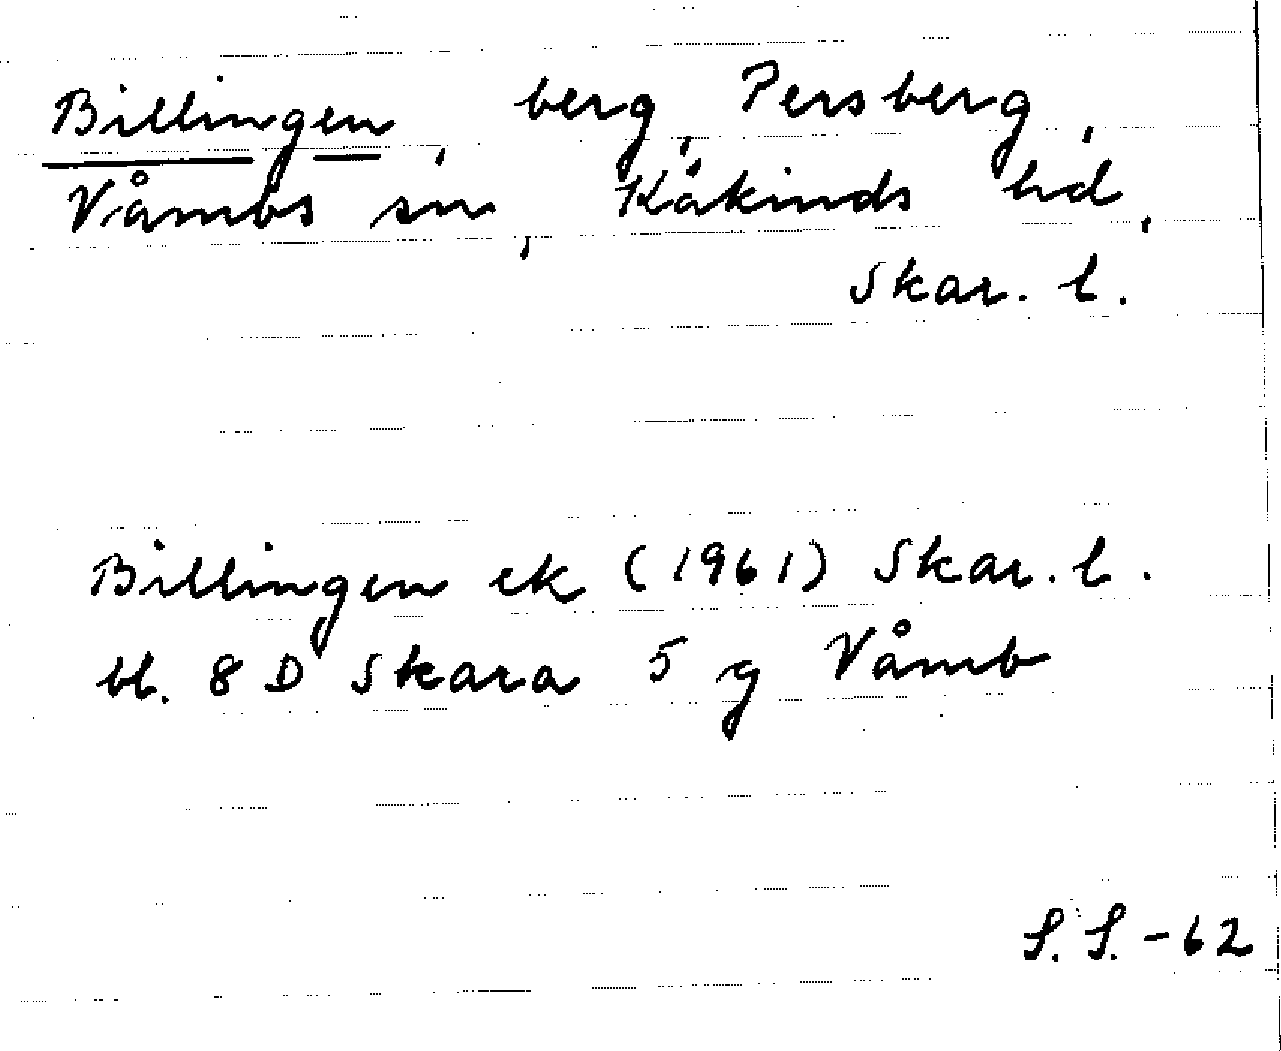 Billingen, berg, Persberg,
Våmbs sn, Kåkinds hd,
Skar. l.
Billingen ek (1961) Skar. l.
bl. 8 D Skara 5 g Våmb
S. S. -62